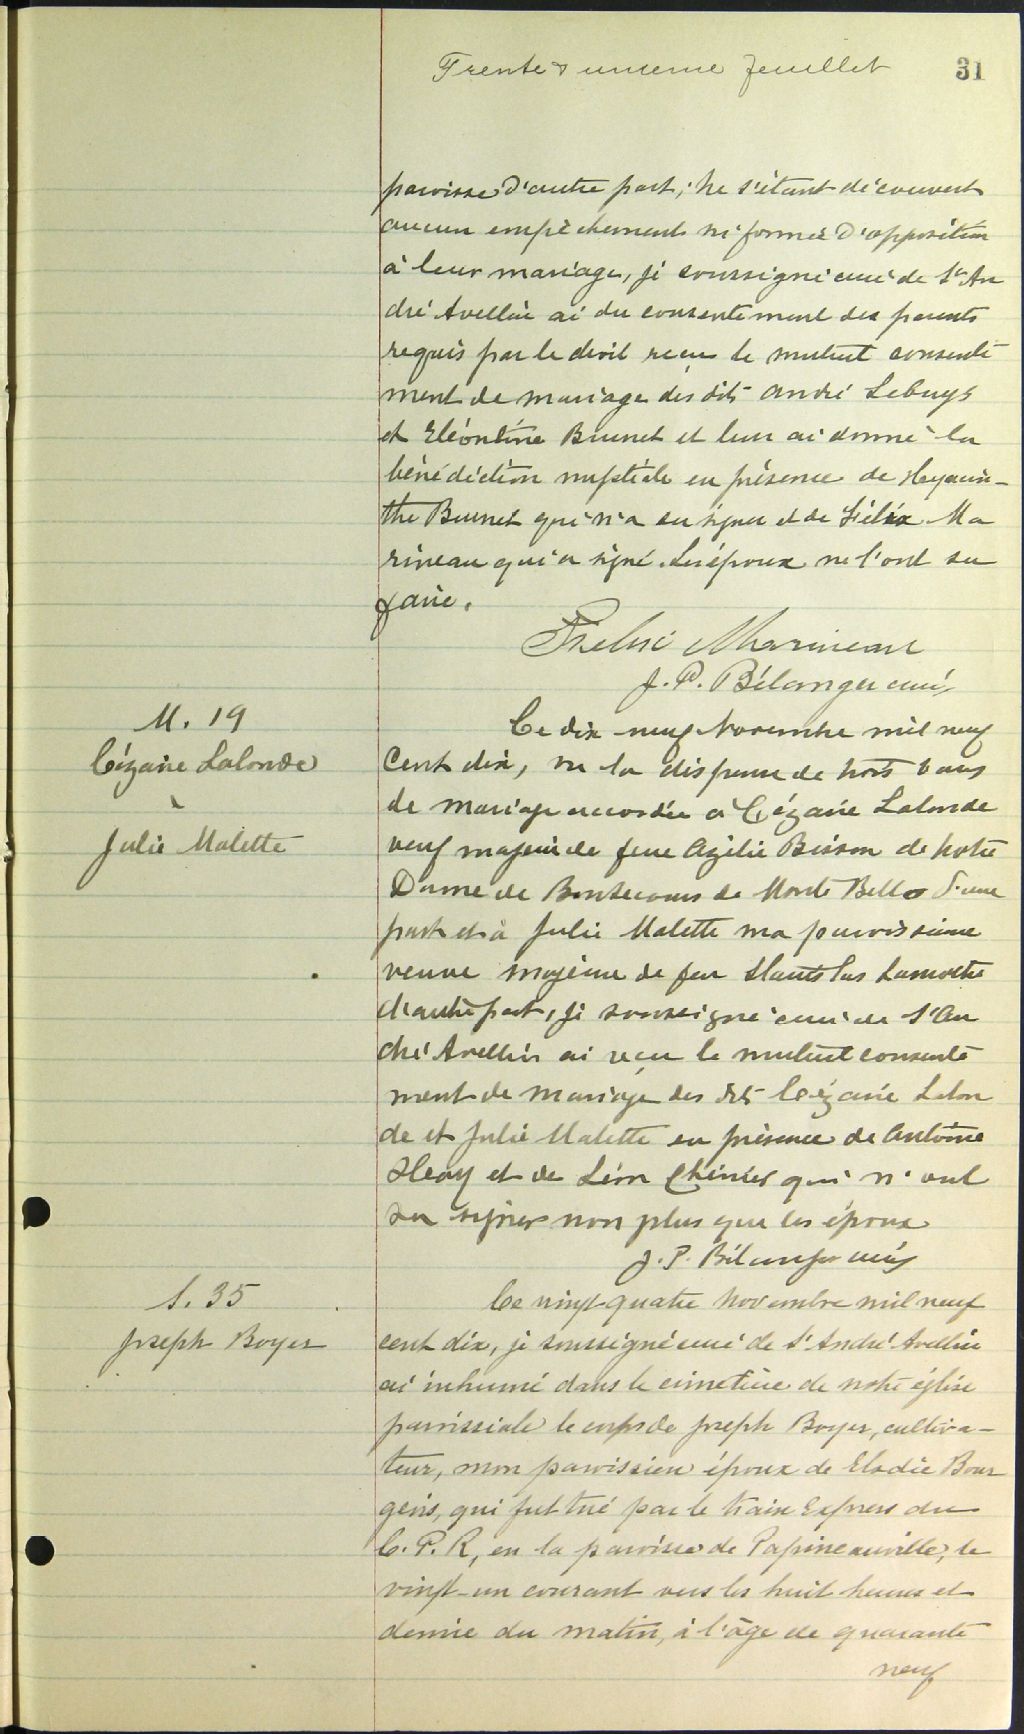 Trente & unieme feuillet 31
paroisse d'autre part; ne s'étant découvert
aucun empêchement ni formée d'opposition
à leur mariage, je soussigné curé de St An
dré Avellin ai du consentement des parents
requis par le droit reçu le mutuel consente
ment de mariage des dits André Lebuys
et Eléontine Brunet et leur ai donné la
bénédiction nuptiale en présence de Hyacin-
the Brunet qui n'a su signer et de Félix Ma
rineau qui a signé. Les époux ne l'ont su
faire.
Félix Marineau
J. P. Bélanger curé
M. 19
Cézaire Lalonde
&
Julie Malette
Ce dix neuf Novembre mil neuf
Cent dix, vu la dispense de trois bans
de mariage accordée à Cézaire Lalonde
veuf majeur de feue Azélie Bisson de Notre
Dame de Bonsecours de Monte Bello d'une
part et à Julie Malette ma paroissienne
veuve majeure de feu Stanislas Lamothe
d'autre part, je soussigné curé de St An
dré Avellin ai reçu le mutuel consente
ment de mariage des dits Cézaire Lalon
de et Julie Malette en présence de Antoine
Heay et de Léon Chénier qui n'ont
su signer non plus que les époux
J. P. Bélanger curé
S. 35
Joseph Boyer
Ce vingt-quatre Novembre mil neuf
cent dix, je soussigné curé de St André Avellin
ai inhumé dans le cimetière de notre église
paroissiale le corps de Joseph Boyer, cultiva-
teur, mon paroissien époux de Elodie Bour
geois, qui fut tué par le train Express du
C. P. R, en la paroisse de Papineauville, le
vingt-un courant vers les huit heures et
demie du matin, à l'âge de quarante
neuf